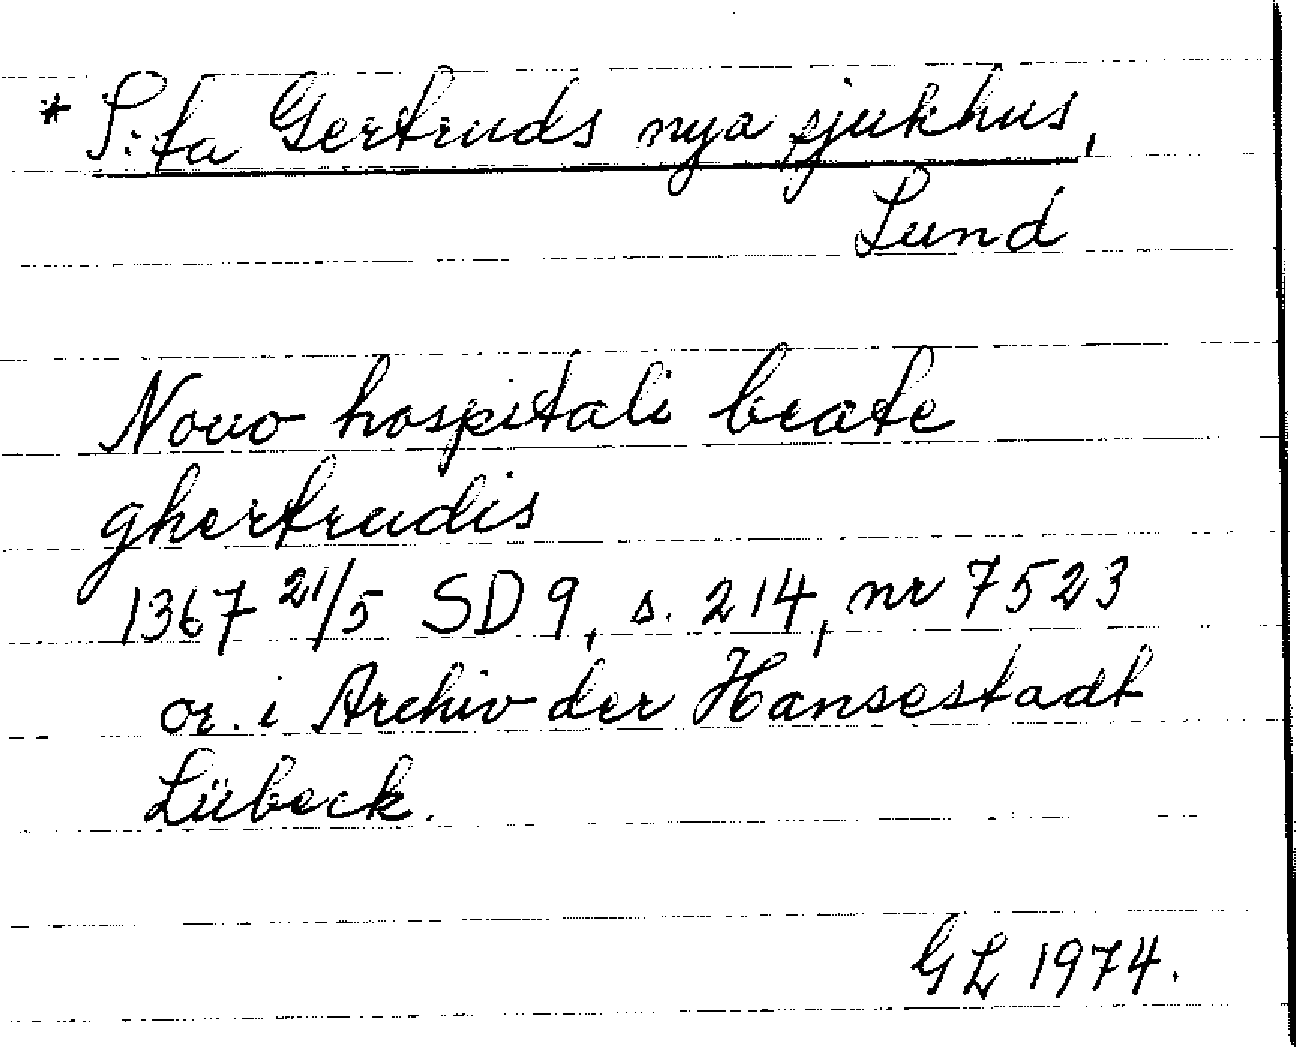 * S:ta Gertruds nya sjukhus,
Lund
Novo hospitali beate
ghertrudis
1367 21/5 SD 9, s. 214, nr 7523
or. i Archiv der Hansestadt
Lübeck.
GL 1974.